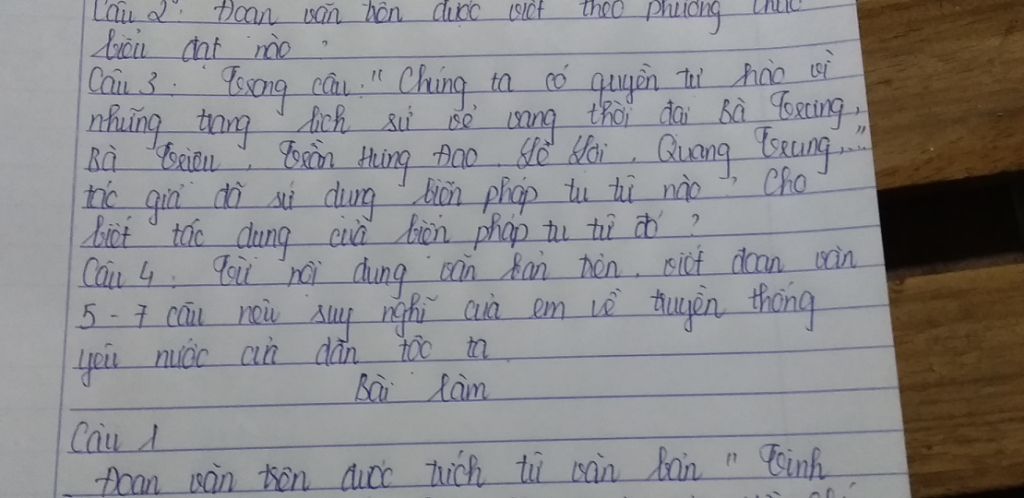 Câu 2: Đoạn văn trên được viết theo phương thức
biểu đạt nào?
Câu 3: Trong câu: "Chúng ta có quyền tự hào vì
những trang lịch sử vẻ vang thời đại Bà Trưng,
Bà Triệu, Trần Hưng Đạo, Lê Lợi, Quang Trung,..."
tác giả đã sử dụng biện pháp tu từ nào? Cho
biết tác dụng của biện pháp tu từ đó?
Câu 4: Từ nội dung văn bản trên, viết đoạn văn
5-7 câu nêu suy nghĩ của em về truyền thống
yêu nước của dân tộc ta
Bài làm
Câu 1
Đoạn văn trên được trích từ văn bản "Tinh